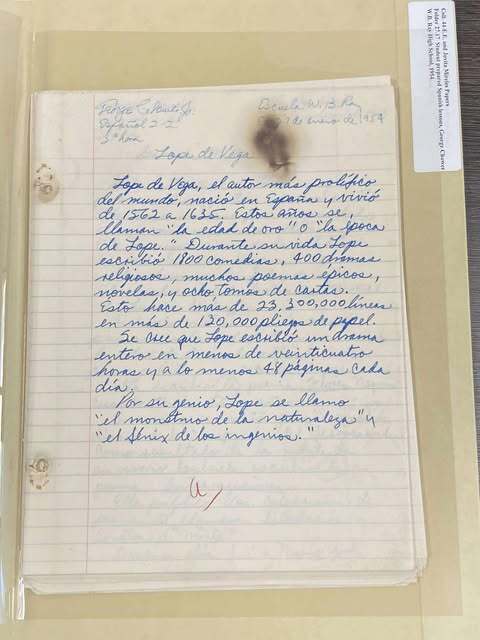 Coll. 44 E.E. and Jovita Mireles Papers
Folder 27.17 Student prepared Spanish lessons, George Cluwer
W.B. Ray High School, 1954.
George Jr.
Escuela W. B. Ray
Español 2-2
7 de enero de 1954
3ª hora
Lope de Vega
Lope de Vega, el autor más prolífico
del mundo, nació en España y vivió
de 1562 a 1635. Estos años se
llaman "la edad de oro" o "la época
de Lope." Durante su vida Lope
escribió 1800 comedias, 400 dramas
religiosos, muchos poemas épicos,
novelas, y ocho tomos de cartas.
Esto hace más de 23,300,000 líneas
en más de 120,000 pliegos de papel.
Se cree que Lope escribió un drama
entero en menos de veinticuatro
horas y a lo menos 48 páginas cada
día.
Por su genio, Lope se llamo
"el monstruo de la naturaleza" y
"el fénix de los ingenios."
a